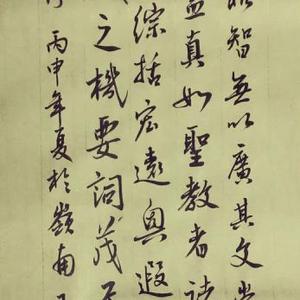 智無以廣其文崇
盖真如聖教者諸
綜括宏遠奥遐
之機要詞茂
丙申年夏於嶺南